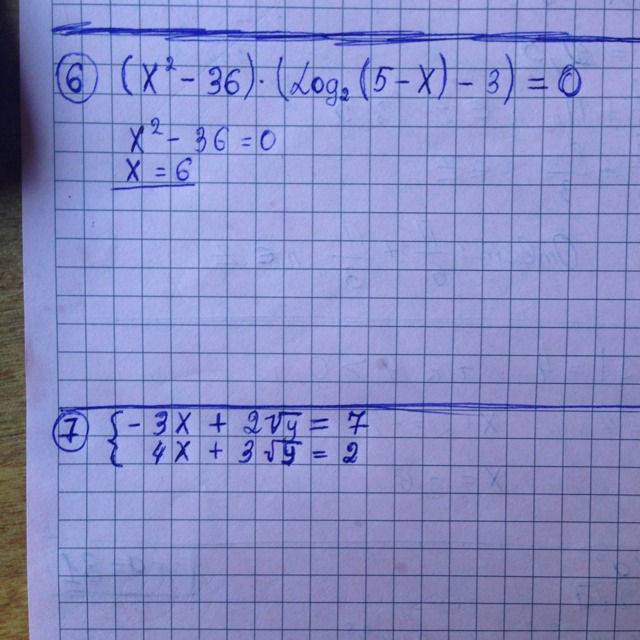 6 (x² - 36)·(Log₂(5 - x) - 3) = 0
x² - 36 = 0
x = 6
7 { - 3x + 2√y = 7
4x + 3√y = 2